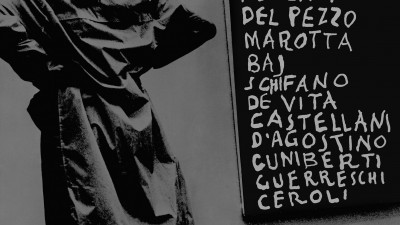 DEL PEZZO
MAROTTA
BAJ
SCHIFANO
DE VITA
CASTELLANI
D'AGOSTINO
CUNIBERTI
GUERRESCHI
CEROLI